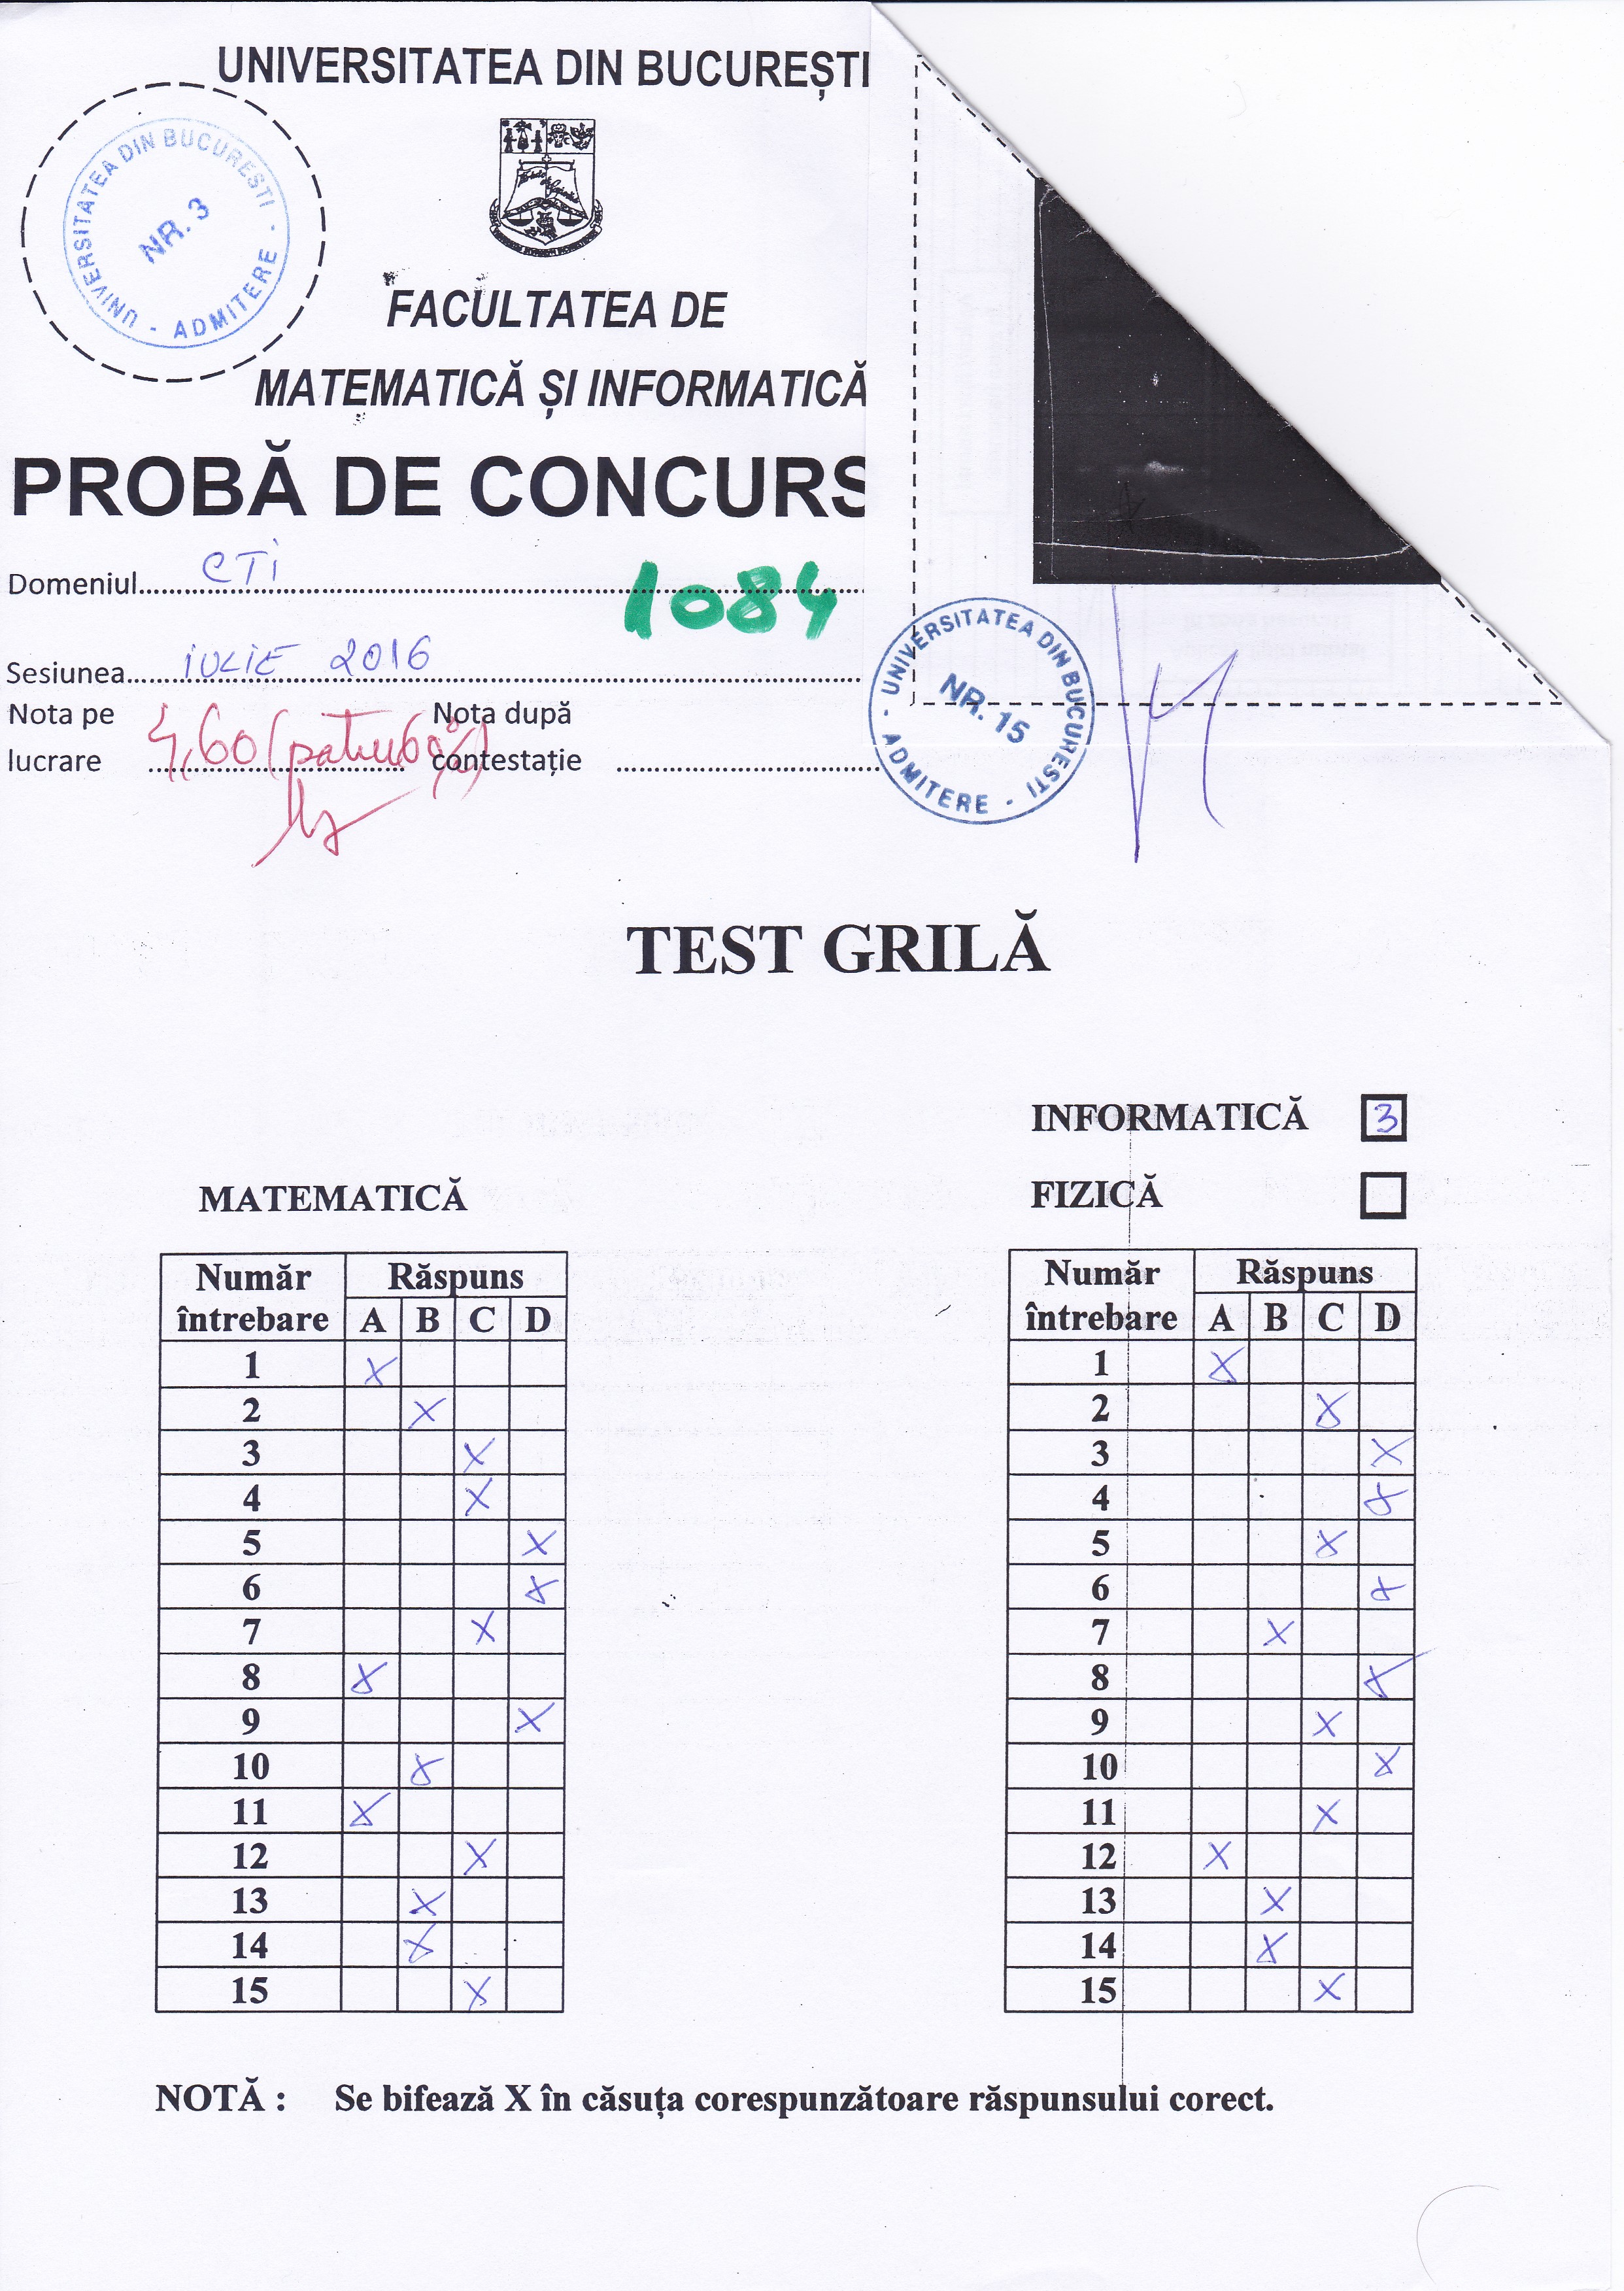 UNIVERSITATEA DIN BUCUREȘTI
UNIVERSITATEA DIN BUCURESTI - ADMITERE -
NR. 3
FACULTATEA DE
MATEMATICĂ ȘI INFORMATICĂ
PROBĂ DE CONCURS
Domeniul......CTI......
1084
Sesiunea......IULIE 2016......
Nota pe lucrare 4,60 (patru 60%)
Nota după contestație ......
UNIVERSITATEA DIN BUCURESTI - ADMITERE -
NR. 15
TEST GRILĂ
INFORMATICĂ 3
FIZICĂ
MATEMATICĂ
Număr întrebare Răspuns
A B C D
1 X
2 X
3 X
4 X
5 X
6 X
7 X
8 X
9 X
10 X
11 X
12 X
13 X
14 X
15 X
Număr întrebare Răspuns
A B C D
1 X
2 X
3 X
4 X
5 X
6 X
7 X
8 X
9 X
10 X
11 X
12 X
13 X
14 X
15 X
NOTĂ : Se bifează X în căsuța corespunzătoare răspunsului corect.